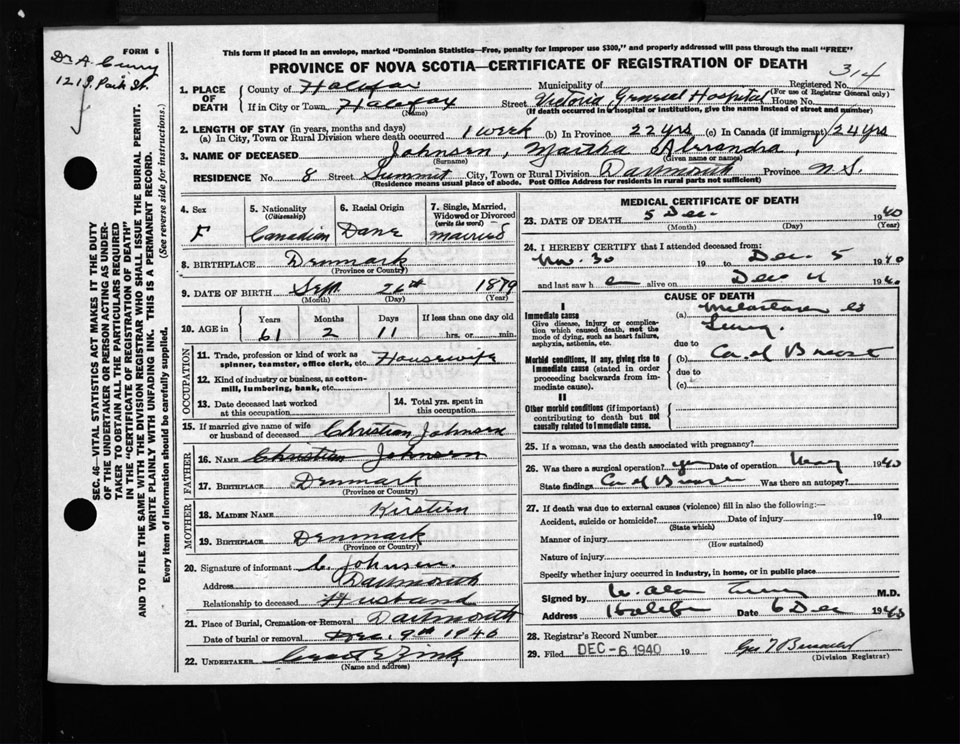 FORM 6
Dr A. Curry
121 S. Park St.
This form if placed in an envelope, marked "Dominion Statistics—Free, penalty for improper use $300," and properly addressed will pass through the mail "FREE"
PROVINCE OF NOVA SCOTIA—CERTIFICATE OF REGISTRATION OF DEATH
314
1. PLACE OF DEATH
County of Halifax Municipality of Registered No. (For use of Registrar General only)
If in City or Town Halifax (Name) Street Victoria General Hospital House No.
(If death occurred in a hospital or institution, give the name instead of street and number)
2. LENGTH OF STAY (in years, months and days)
(a) In City, Town or Rural Division where death occurred 1 week (b) In Province 22 yrs (c) In Canada (if immigrant) 24 yrs
3. NAME OF DECEASED Johnsen, Martha Alexandra,
(Surname) (Given name or names)
RESIDENCE No. 8 Street Summit City, Town or Rural Division Dartmouth Province N.S.
(Residence means usual place of abode. Post Office Address for residents in rural parts not sufficient)
4. Sex F
5. Nationality (Citizenship) Canadian
6. Racial Origin Dane
7. Single, Married, Widowed or Divorced (write the word) Married
8. BIRTHPLACE Denmark
(Province or Country)
9. DATE OF BIRTH Sept. 26th 1879
(Month) (Day) (Year)
10. AGE in Years 61 Months 2 Days 11 If less than one day old hrs. or min.
OCCUPATION
11. Trade, profession or kind of work as spinner, teamster, office clerk, etc. Housewife
12. Kind of industry or business, as cotton-mill, lumbering, bank, etc.
13. Date deceased last worked at this occupation
14. Total yrs. spent in this occupation
15. If married give name of wife or husband of deceased Christian Johnsen
FATHER
16. NAME Christian Johnsen
17. BIRTHPLACE Denmark
(Province or Country)
MOTHER
18. MAIDEN NAME Kirstien
19. BIRTHPLACE Denmark
(Province or Country)
20. Signature of informant C. Johnsen.
Address Dartmouth
Relationship to deceased Husband
21. Place of Burial, Cremation or Removal Dartmouth
Date of burial or removal Dec. 9th 1940
22. UNDERTAKER Zink
(Name and address)
MEDICAL CERTIFICATE OF DEATH
23. DATE OF DEATH 5 Dec 1940
(Month) (Day) (Year)
24. I HEREBY CERTIFY that I attended deceased from:
Nov. 30 19 to Dec. 5 1940
and last saw h er alive on Dec 4 1940
CAUSE OF DEATH
I
Immediate cause
Give disease, injury or complication which caused death, not the mode of dying, such as heart failure, asphyxia, asthenia, etc.
(a) Metastases to Lung.
due to
Morbid conditions, if any, giving rise to immediate cause (stated in order proceeding backwards from immediate cause).
(b) Ca of Breast
due to
(c)
II
Other morbid conditions (if important) contributing to death but not causally related to immediate cause.
25. If a woman, was the death associated with pregnancy?
26. Was there a surgical operation? yes Date of operation May 1940
State findings Ca of Breast Was there an autopsy?
27. If death was due to external causes (violence) fill in also the following:—
Accident, suicide or homicide? Date of injury 19
(State which)
Manner of injury
(How sustained)
Nature of injury
Specify whether injury occurred in industry, in home, or in public place
Signed by Alan Curry M.D.
Address Halifax Date 6 Dec 1940
28. Registrar's Record Number
29. Filed DEC -6 1940 19
(Division Registrar)
SEC. 46—VITAL STATISTICS ACT MAKES IT THE DUTY
OF THE UNDERTAKER OR PERSON ACTING AS UNDER-
TAKER TO OBTAIN ALL THE PARTICULARS REQUIRED
IN THE "CERTIFICATE OF REGISTRATION OF DEATH"
AND TO FILE THE SAME WITH THE DIVISION REGISTRAR WHO SHALL ISSUE THE BURIAL PERMIT.
WRITE PLAINLY WITH UNFADING INK. THIS IS A PERMANENT RECORD.
Every item of information should be carefully supplied. (See reverse side for instructions.)